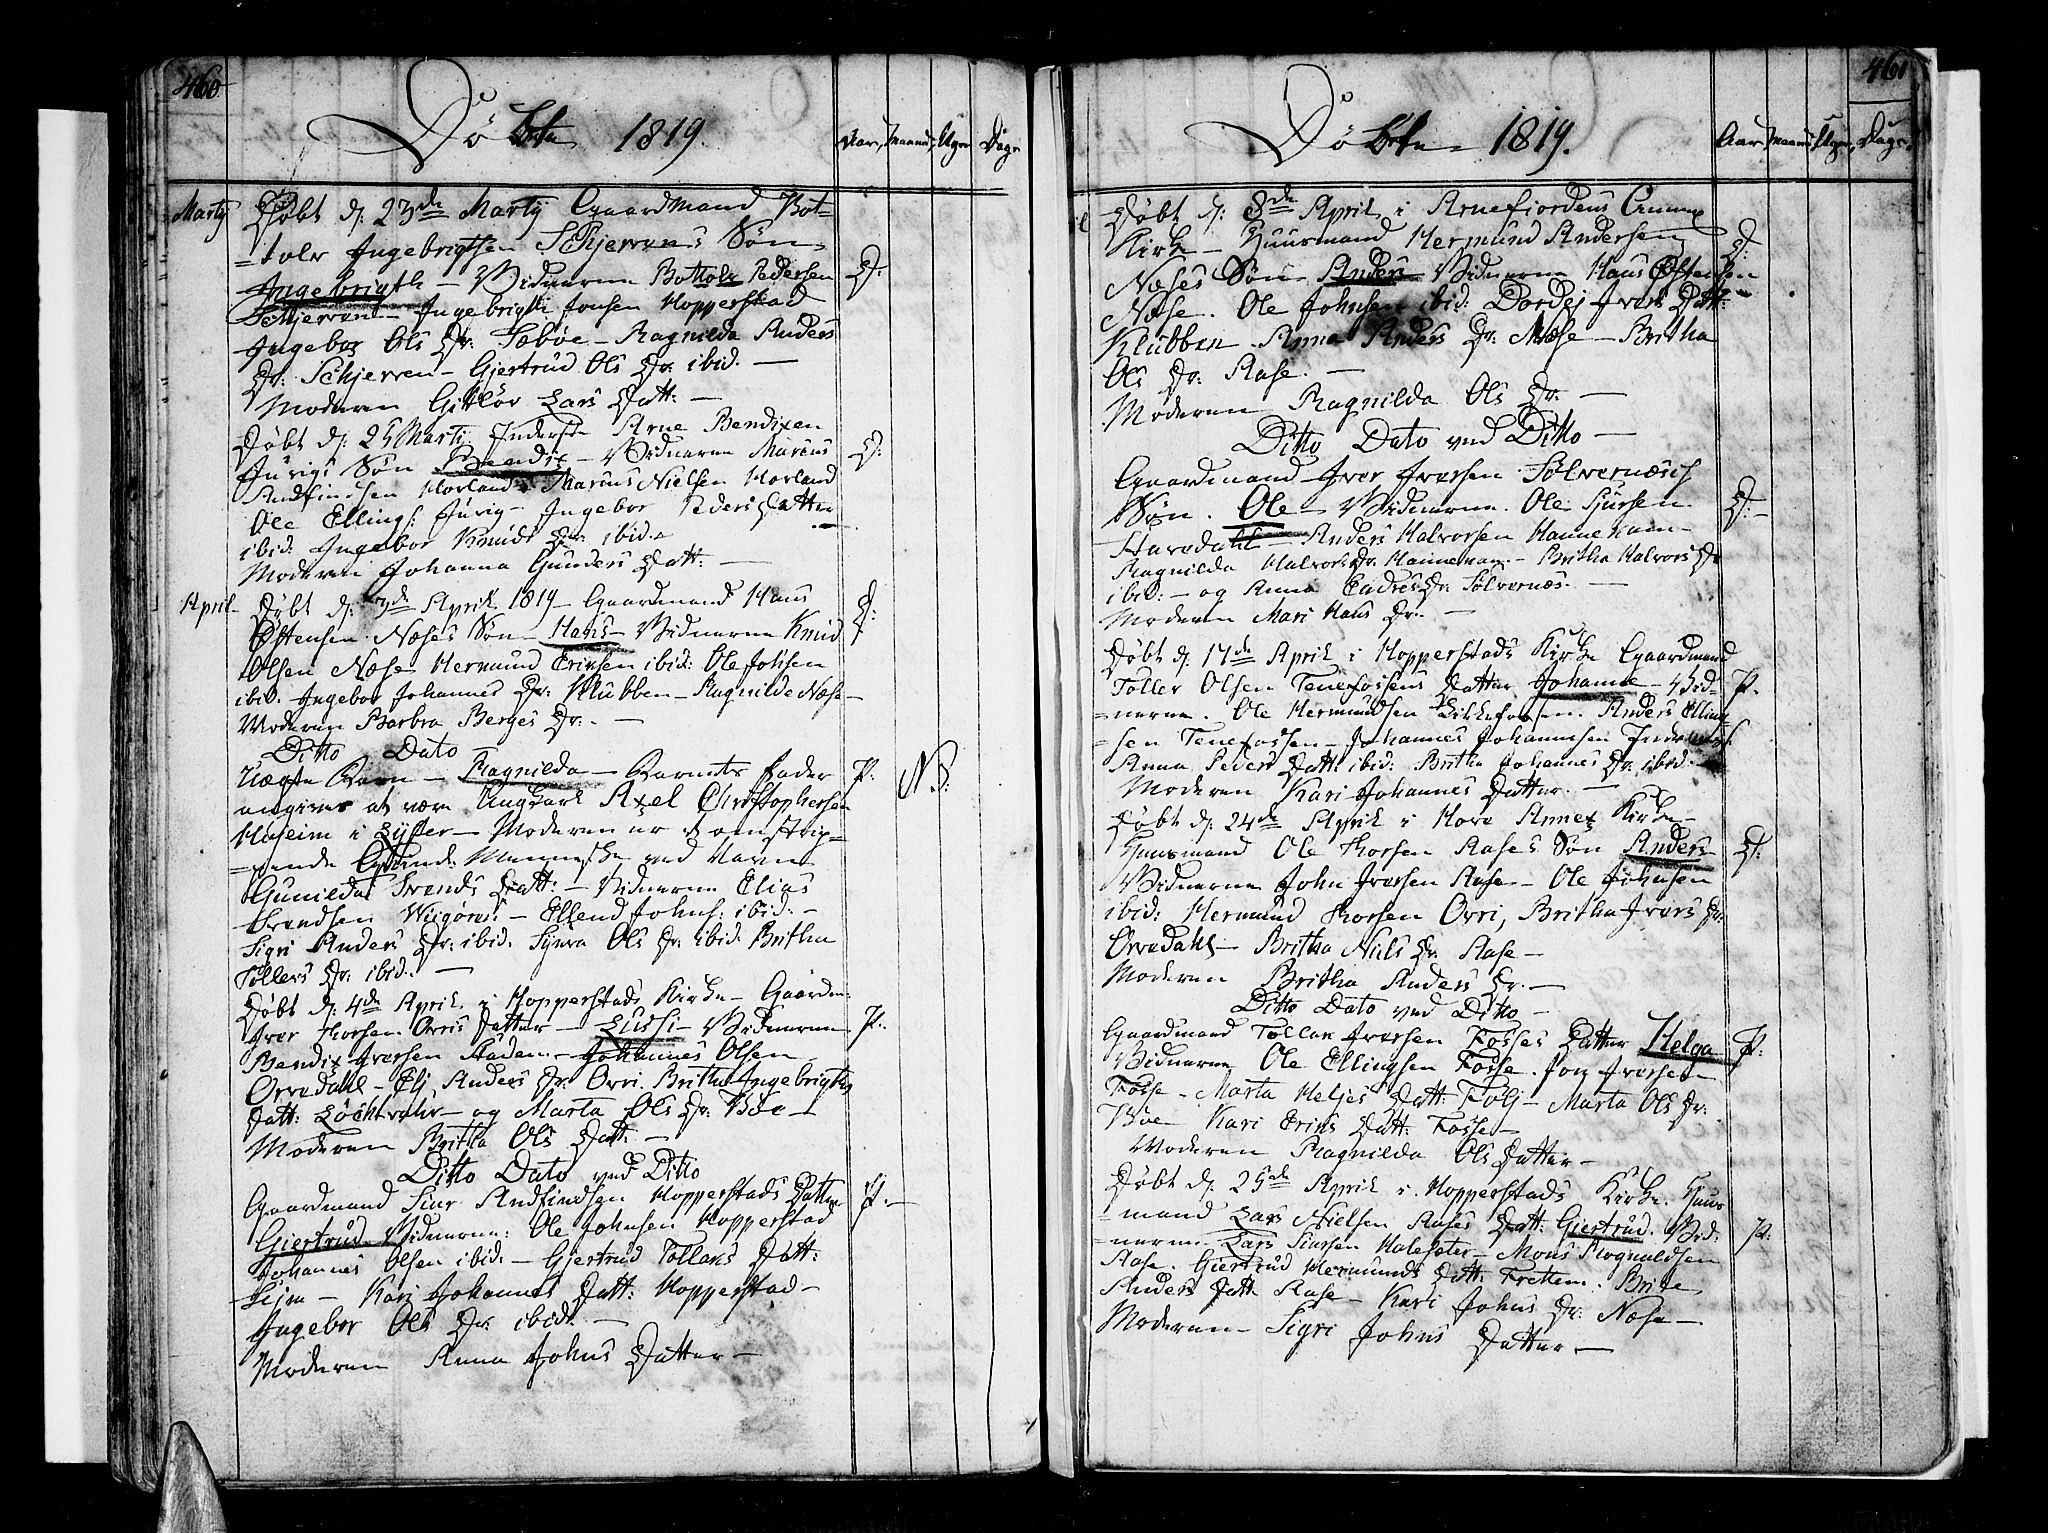 460
Döbte 1819.
Aar, Maaned, Uger Dage
Martij Döbt d: 23de Martij Gaardmand Bot-
=tolv Ingebrigtsen Schjervens Søn
Ingebrigth - Vidnerne Bottolv Pedersen D:
Schjerven - Ingebrigth Jonsen Hopperstad
Ingebor Ols Dr: Sæbøe - Ragnilda Anders
Dr: Schjerven - Gjertrud Ols Dr: ibid. -
Moderen Gitløv Lars Datt: -
Døbt d: 25 Marti Inderste Arne Bendixen
Jurigs Søn Bendix - Vidnerne Marcus D:
Andfindsen Hovland - Marcus Nielsen Hovland
Ole Ellings: Jurig - Ingebor Peders Datter
ibid: Ingebor Knuds Dr: ibid. -
Moderen Johanna Gunders Datt: -
April - Døbt d: April 1819 - Gaardmand Hans D:
Østensen Næses Søn - Hans - Vidnerne Knud
Olsen Næse Hermund Eriksen ibid: Ole Johsen
ibid. Ingebor Johannes Dr: Klubben - Ragnilde Næse -
Moderen Barbra Berges Dr: -
Ditto Dato
Uægte Barn - Ragnilda - Barnets Fader P: N.B:
angives at være Ungkarl Axel Christophersen
i Lyster - Moderen er et omstrip=
=pende Menneske ved Navn
Gunilda Svends Datt: - Vidnerne Elias
Svendsen - Ellend Johns: ibid: -
Sigri Anders Dr: ibid. Synva Ols Dr: ibid: Britha
Tollers Dr: ibid. -
Døbt d: 4de April i Hopperstads Kirke - Gaardm:
Iver Thorsen Orris Datter - Lussi - Vidnerne P:
Bendix Iversen - Johannes Olsen
Orvedahl - Eli Anders Dr: Orri. Britha Ingebrigths
Datt: - og Marta Ols Dr: Bøe -
Moderen Britha Ols Datt: -
Ditto Dato ved Ditto
Gaardmand Siur Andfindsen Hopperstads Datter P. -
Giertrud Vidnerne: Ole Johnsen Hopperstad
Johannes Olsen ibid: - Gjertrud Tollans Datt:
- Kari Johannes Datt: Hopperstad -
Ingebor Ols Dr: ibid. -
Moderen Anna Johns Datter -
461
Döbte - 1819.
Aar Maaned, Uger, Dage.
Døbt d: 8de April i Arnefiordens Annex
Kirke - Huusmand Hermund Andersen D:
Næses Søn - Anders - Vidnerne Hans Østensen
Næse. Ole Johnsen ibid: Dordej Ivers Datt:
Klubben - Anna Anders Dr: Næse - Britha
Ols Dr: Aase. -
Moderen Ragnilda Ols Dr: -
Ditto Dato ved Ditto -
Gaardmand Iver Iversen
Søn. Ole - Vidnerne. Ole Sjursen D: -
- Anders Halvorsen Hannekam -
Ragnilda Halvors Dr: Hannekam - Britha Halvors Dr
ibid: - og Anna Endres Dr: Sølvernæs. -
Moderen Mari Hans Dr: -
Døbt d: 17de April i Hopperstads Kirke Gaardmand
Toller Olsen Tenefossens Datter Johanne - Vid= P.
=nerne. Ole Hermundsen . Anders Elling=
=sen Tenefossen - Johannes Johannesen
Anna Peders Datt: ibid: Britha Johannes Dr: ibid: -
Moderen Kari Johannes Datter. -
Døbt d: 24de April i Hove Annex Kirke -
Huusmand Ole Thorsen Aases Søn Anders D:
Vidnerne John Iversen Aase - Ole Johnsen
ibid: Hermund Thorsen Orri, Britha Ivers Dr:
Orvedahl - Britha Niels Dr: Aase -
Moderen Britha Anders Dr: -
Ditto Dato ved Ditto -
Gaardmand Tollar Iversen Fosses Datter Helga P:
Vidnerne Ole Ellingsen Fosse. Iver Iversen
Fosse - Marta Heljes Datt: - Marta Ols Dr:
Bøe Kari Eriks Datt: Fosse -
Moderen Ragnilda Ols Datter -
Døbt d: 25de April i Hopperstads Kirke. Huus
=mand Lars Nielsen Aases Datt: Giertrud. Vid: P:
=nerne Lars Siursen - Mons Rognaldsen
Aase. Giertrud Hermunds Datt: Fretten. Brite
Anders Datt: Aase - Kari Johns Dr: Næse -
Moderen - Sigri Johns Datter -